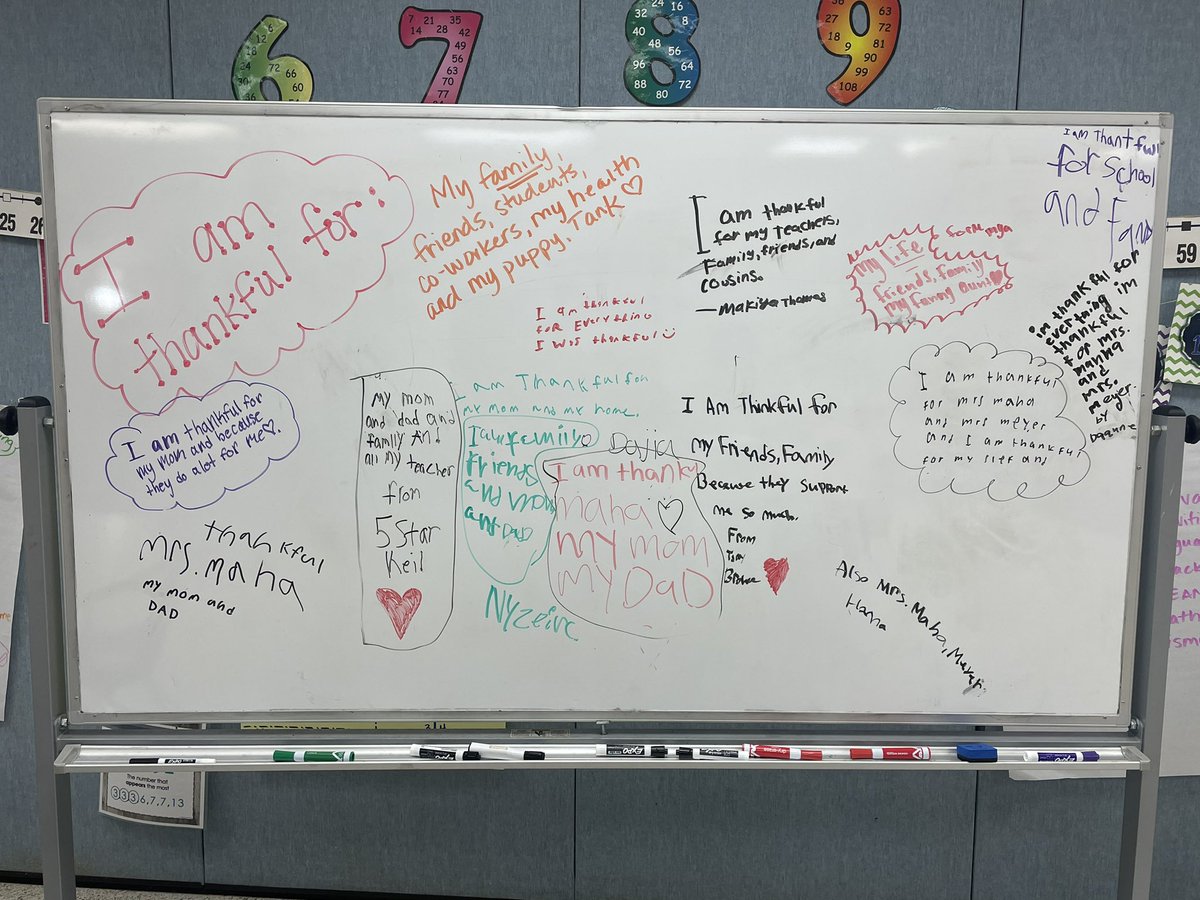 7 21 35
14 28 42
49
56
63
70
77
24 16
32 8
40 48 56
64
96 64
88 72
80
63
27 72
18 81
9
90
99
108
6
12
18
24 72 66
30 60
25 26
59
I am
thankful for:
My family,
friends, students,
co-workers, my health
and my puppy. Tank ♡
I am thankful
for my teachers,
Family, friends, and
cousins.
—Makiya Thomas
my life form mya
friends, Family
my Fanny Aunt
I am Thantfull
for school
and Fam
im thankful for
everthing im
thankful
for mrs.
manha
and
mrs.
meyer.
by
I am thinkful
for Everything
I was thankful
I am thankful for
my mom and because
they do alot for me♡.
My mom
and dad and
family And
all my teacher
from
5 Star
Keil
I am Thankful for
my mom and my home.
family
friends
and mom
ant Dad
NYzeirc
Davia
I am thank
maha ♡
my mom
my DaD
I Am Thinkful for
my Friends, Family
Because they support
me so much.
From
I am thankful
for mrs maha
and mrs meyer
and I am thankful
for my slef and
thankful
Mrs. Maha
my mom and
DAD
Also Mrs. Maha, Meyer.
Hanna
3/4
EXPO
EXPO
EXPO
The number that
appears the most
333 6,7,7,13